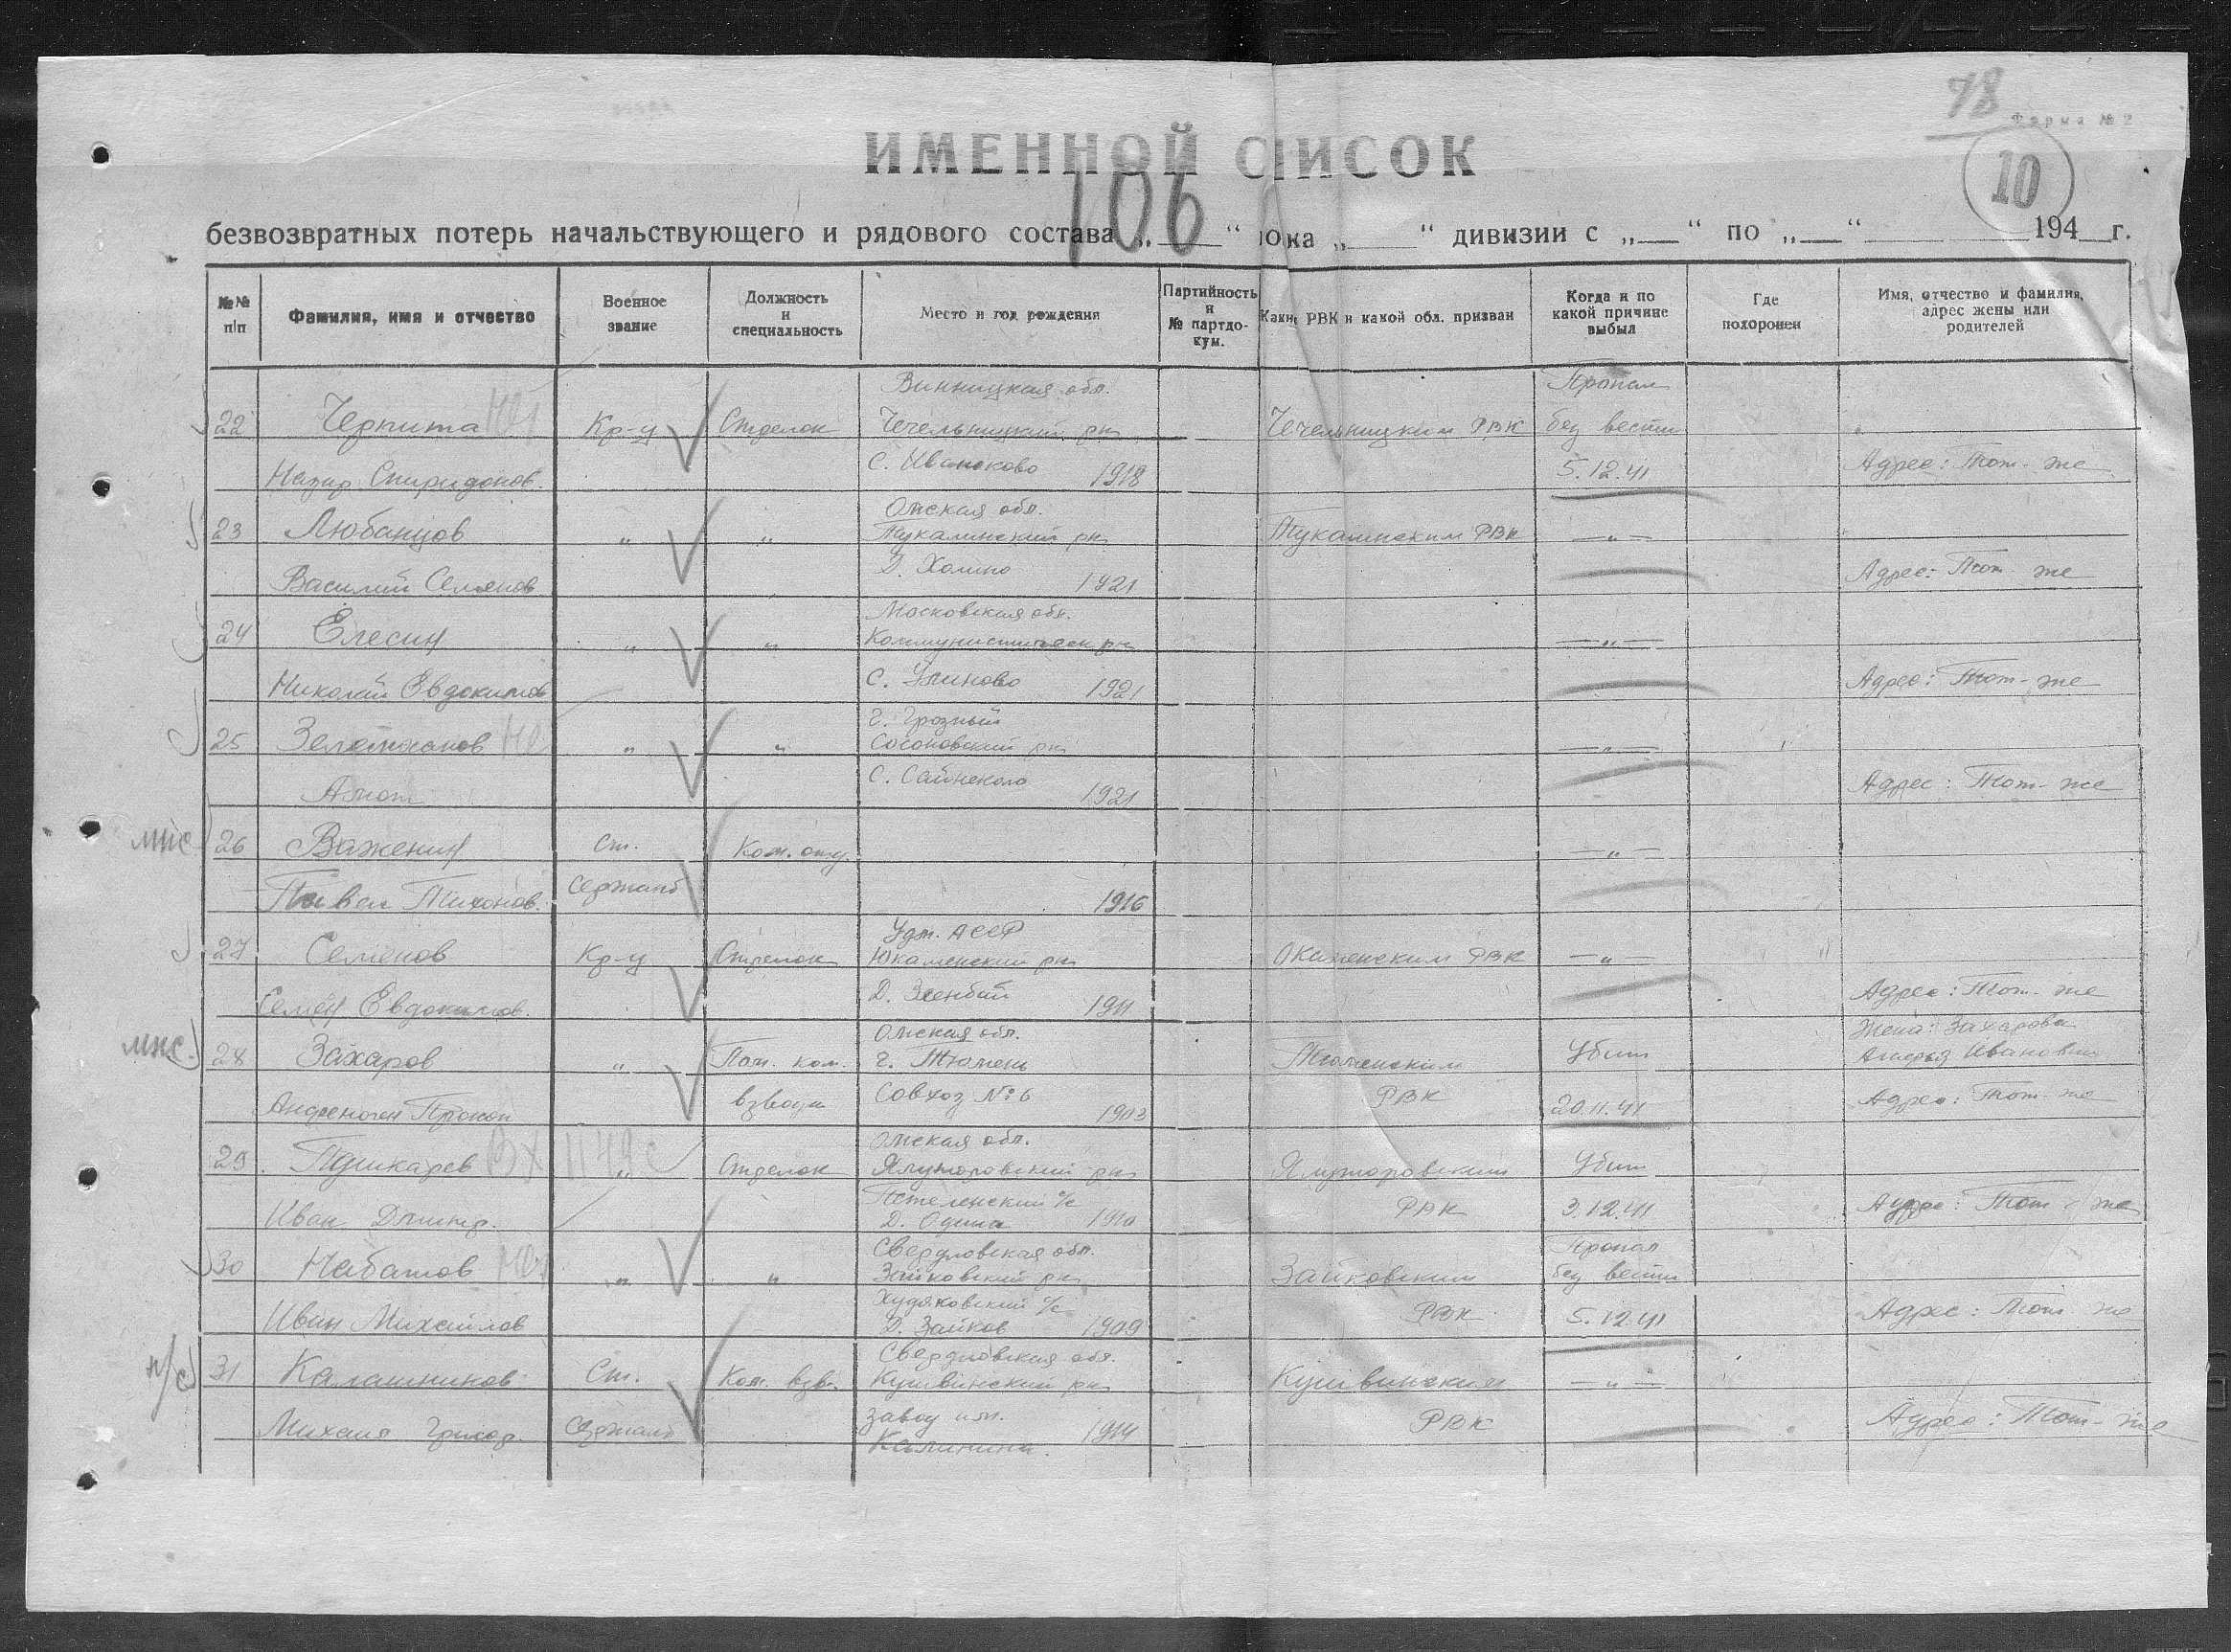 78
Форма № 2
10
ИМЕННОЙ СПИСОК
106
безвозвратных потерь начальствующего и рядового состава „ “ полка „ “ дивизии с „ “ по „ “ 194 г.
№№ п/п
Фамилия, имя и отчество
Военное звание
Должность и специальность
Место и год рождения
Партийность и № партдокум.
Каким РВК и какой обл. призван
Когда и по какой причине выбыл
Где похоронен
Имя, отчество и фамилия, адрес жены или родителей
Винницкая обл. Пропал
22 Кр-ц Стрелок Чечельницкий рн Чечельницким РВК без вести
Назар Спиридонов. С. 1918 5.12.41 Адрес: Тот-же
Омская обл.
23 Любанцов " " Тукалинский рн Тукалинским РВК —"—
Василий Семенов Д. 1921 Адрес: Тот-же
Московская обл.
24 Елесин " " Коммунистическ рн —"—
Николай Евдокимов С. 1921 Адрес: Тот-же
г. Грозный
25 " " рн —"—
С. 1921 Адрес: Тот-же
мнс 26 Важенин Ст. Ком. отд. —"—
Павел Тихонов. сержант 1916
Удм. АССР
27 Семенов Кр-ц Стрелок Юкаменский рн Юкаменским РВК —"—
Семен Евдокимов. Д. 1911 Адрес: Тот-же
Омская обл. Жена: Захарова
мнс. 28 Захаров " Пом. ком. г. Тюмень Тюменским Убит Ивановна
взвода Совхоз № 6 1903 РВК 20.11.41 Адрес: Тот-же
Омская обл.
29 Пушкарев " Стрелок Ялуторовский рн Ялуторовским Убит
Иван Дмитр. с/с РВК 3.12.41 Адрес: Тот-же
Д. 1910
Свердловская обл. Пропал
30 Набатов " " Зайковский рн Зайковским без вести
Иван Михайлов Худяковский с/с РВК 5.12.41 Адрес: Тот-же
Д. Зайков 1909
Свердловская обл.
н/с 31 Калашников Ст. Ком. взв. Кушвинский рн Кушвинским —"—
Михаил Григор. сержант завод им. 1914 РВК Адрес: Тот-же
Калинина.